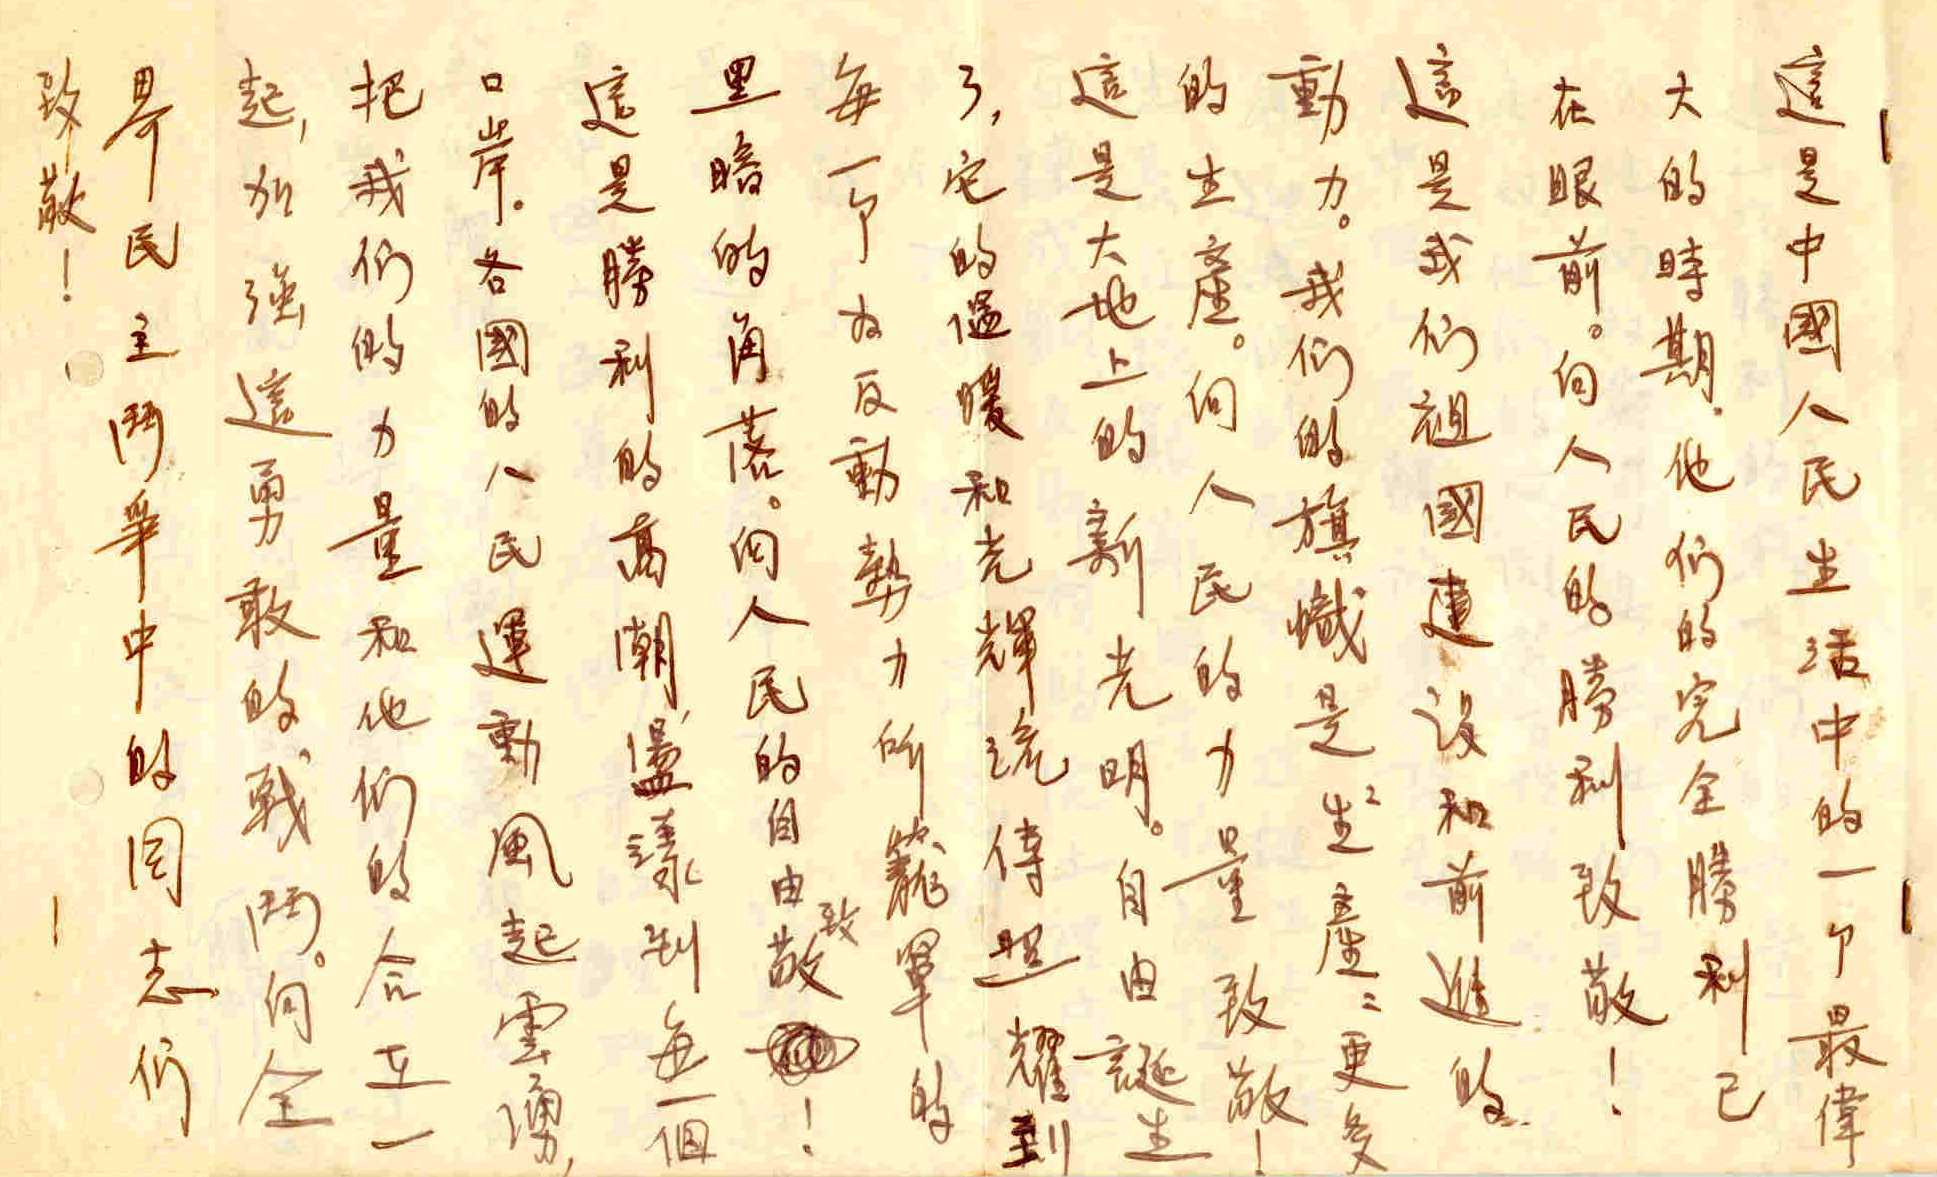 這是中國人民生活中的一个最偉
大的時期.他们的完全勝利已
在眼前。向人民的勝利致敬！
這是我们祖國建設和前進的
動力。我们的旗幟是生產更多
的生產。向人民的力量致敬！
這是大地上的新光明。自由誕生
了,它的温暖和光輝流傳照耀到
每一个为反動勢力所籠罩的
黑暗的角落。向人民的自由致敬！
這是勝利的高潮,盪漾到每一個
口岸。各國的人民運動風起雲湧,
把我们的力量和他们的合在一
起,加強這勇敢的戰鬥。向全
界民主鬥爭中的同志们
致敬！